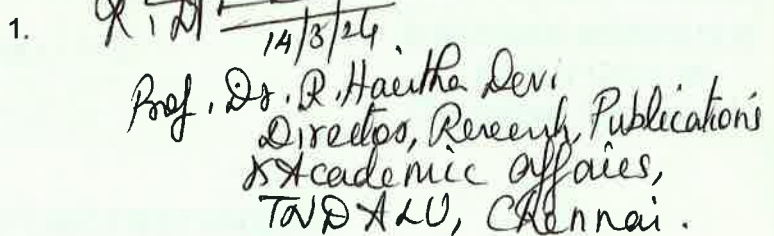 1.
14/3/24
Prof. Dr. R. Haritha Devi
Director, Research, Publications
& Academic Affairs,
TNDALU, Chennai.